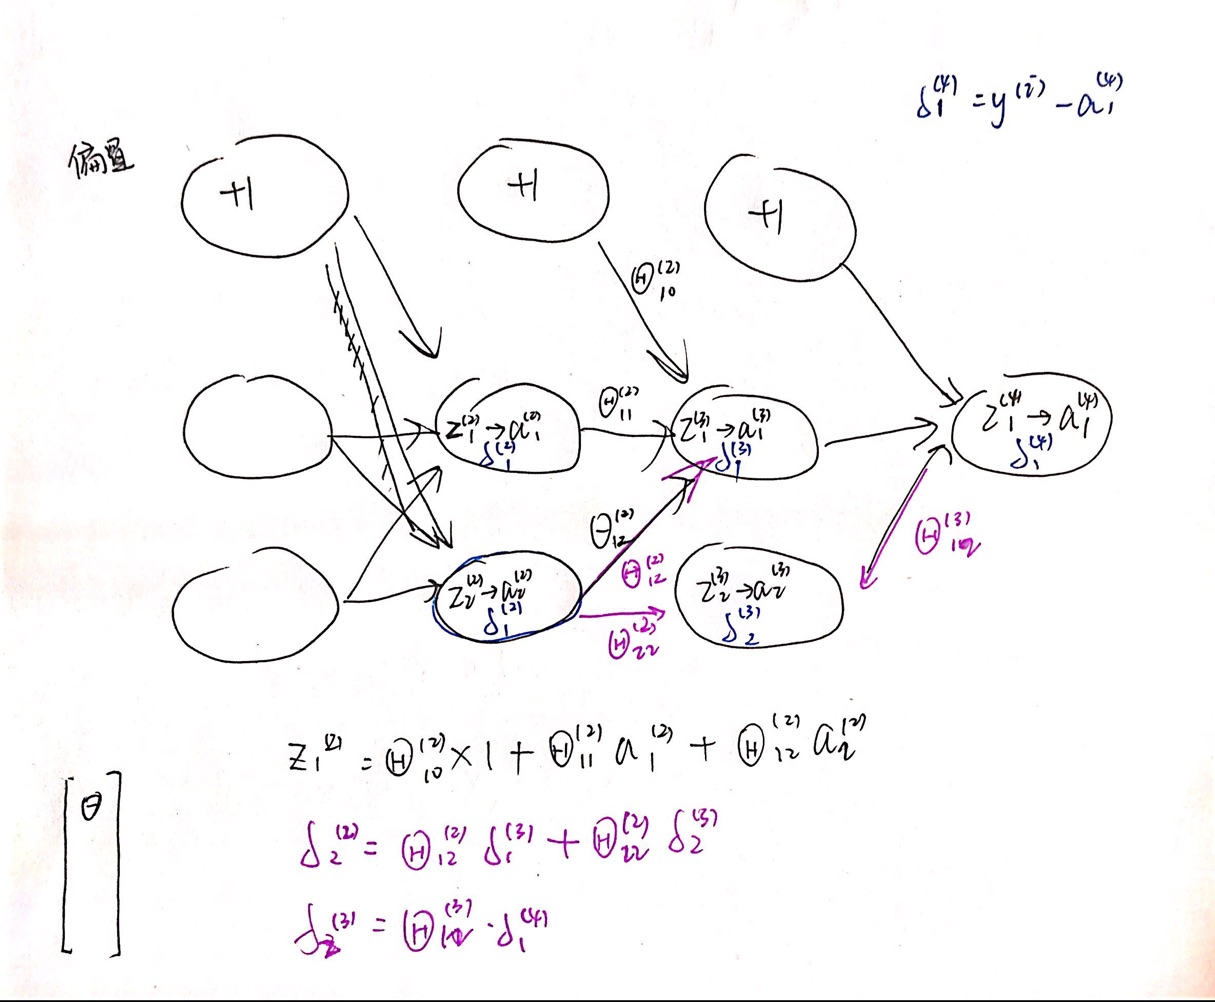 δ₁⁽⁴⁾ = y⁽ⁱ⁾ - a₁⁽⁴⁾
偏置
+1
+1
+1
Θ₁₀⁽²⁾
z₁⁽²⁾ → a₁⁽²⁾
δ₁⁽²⁾
Θ₁₁⁽²⁾
z₁⁽³⁾ → a₁⁽³⁾
δ₁⁽³⁾
z₁⁽⁴⁾ → a₁⁽⁴⁾
δ₁⁽⁴⁾
Θ₁₂⁽²⁾
Θ₁₂⁽³⁾
z₂⁽²⁾ → a₂⁽²⁾
δ₁⁽²⁾
Θ₁₂⁽²⁾
Θ₂₂⁽²⁾
z₂⁽³⁾ → a₂⁽³⁾
δ₂⁽³⁾
z₁⁽²⁾ = Θ₁₀⁽²⁾ × 1 + Θ₁₁⁽²⁾ a₁⁽²⁾ + Θ₁₂⁽²⁾ a₂⁽²⁾
[θ]
δ₂⁽²⁾ = Θ₁₂⁽²⁾ δ₁⁽³⁾ + Θ₂₂⁽²⁾ δ₂⁽³⁾
δ₂⁽³⁾ = Θ₁₂⁽³⁾ · δ₁⁽⁴⁾